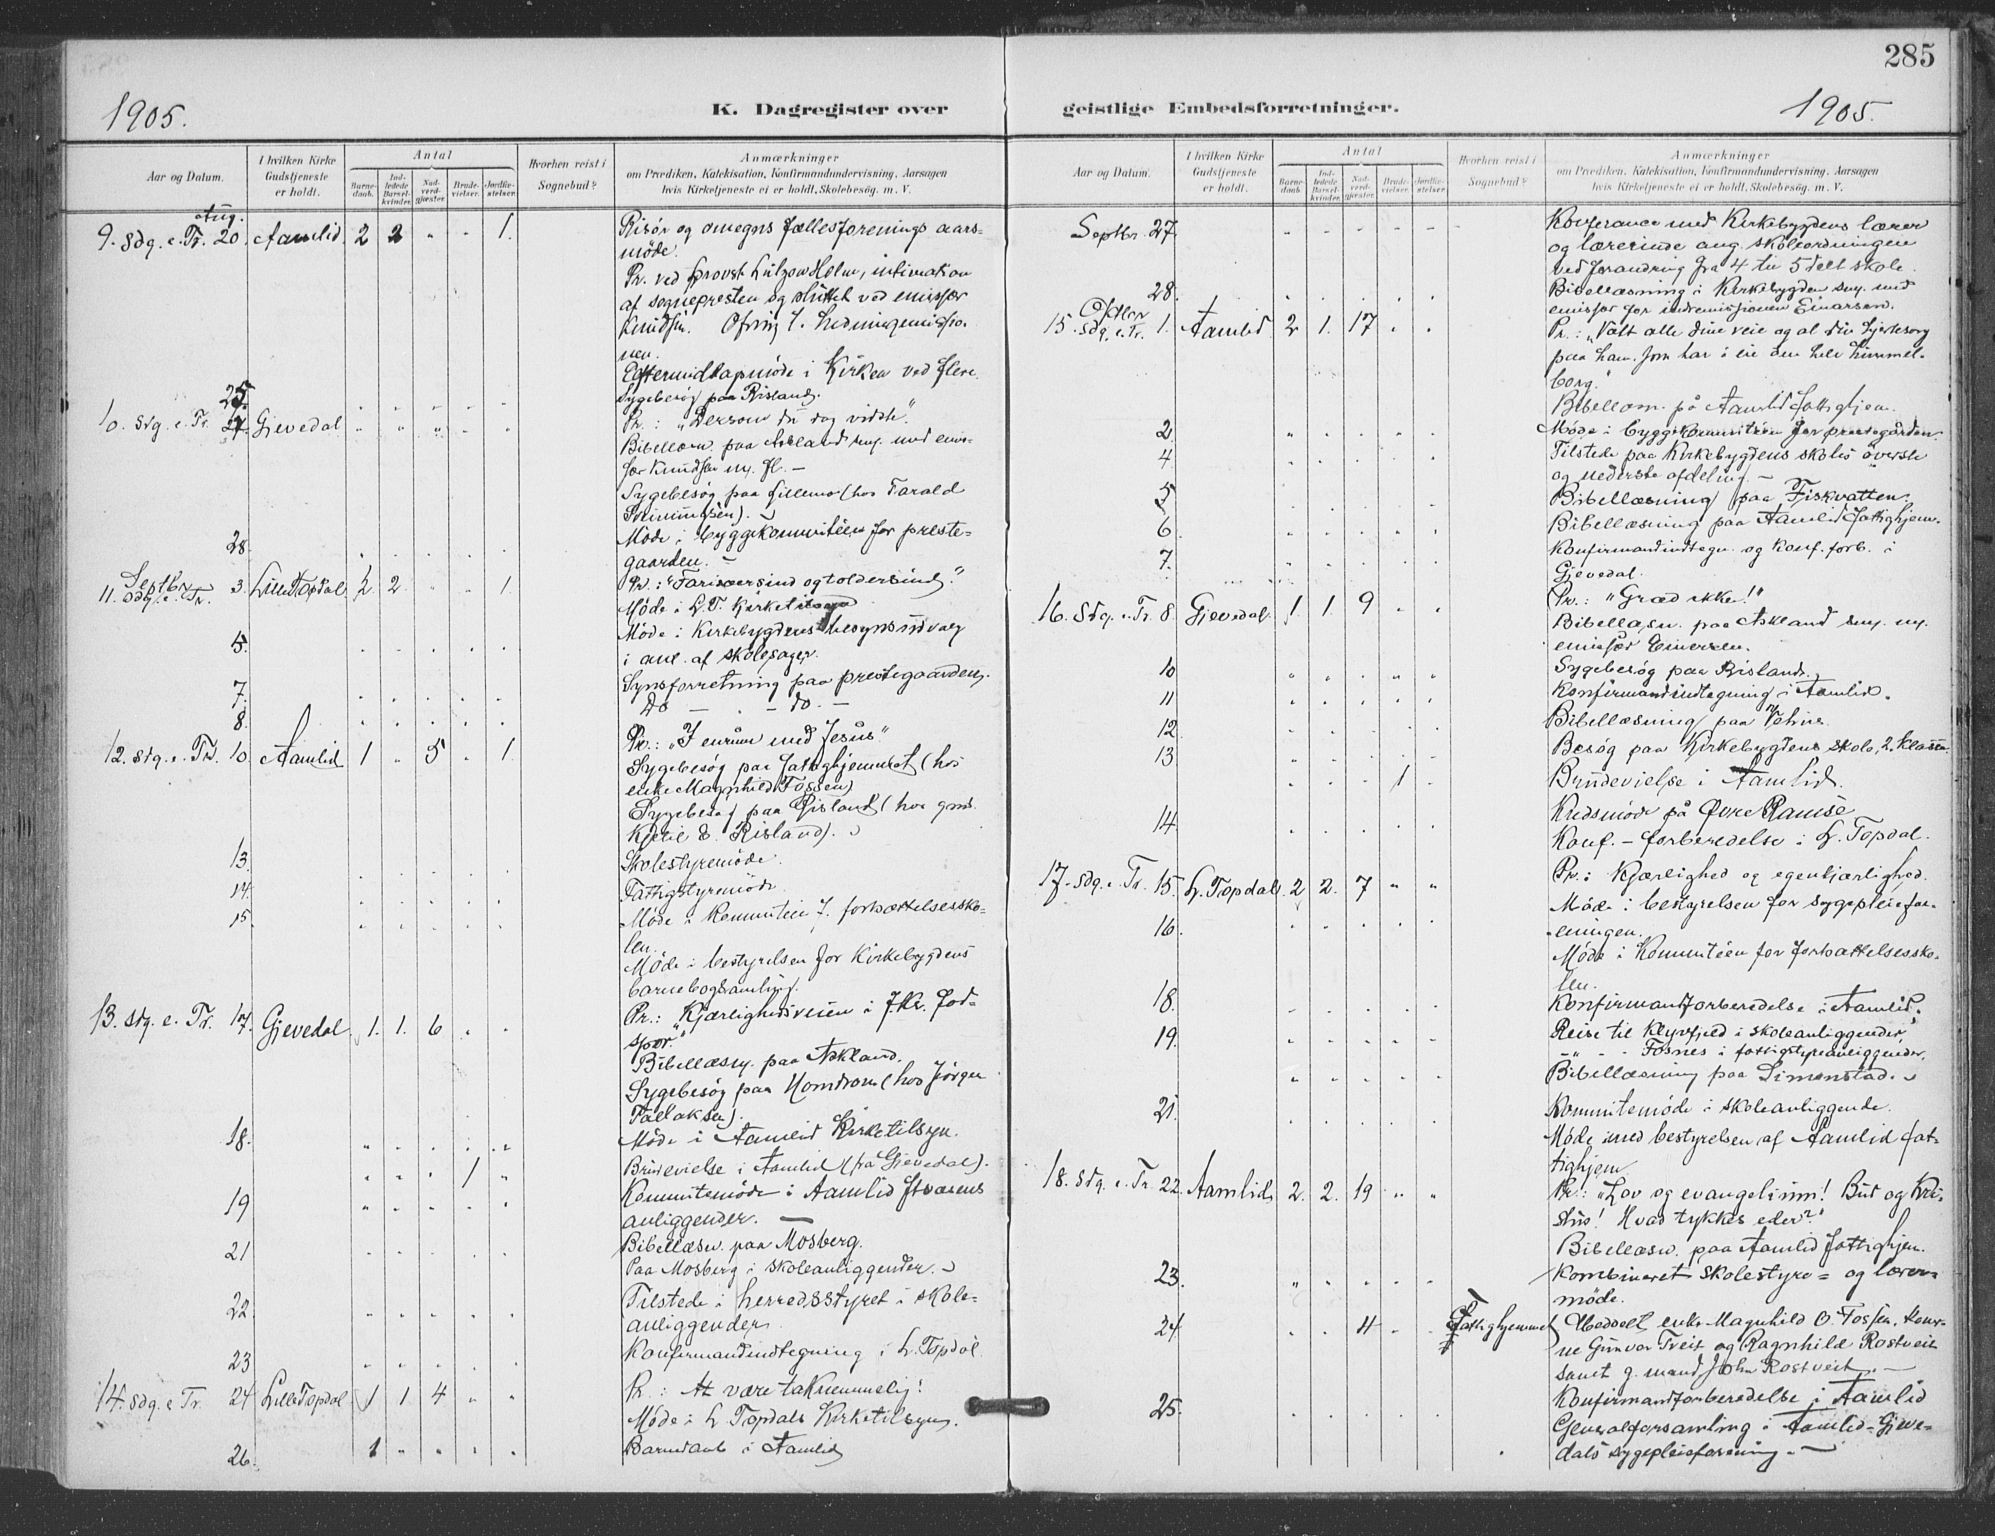 285
1905.
K. Dagregister over
geistlige Embedsforretninger.
1905.
Aar og Datum.
I hvilken Kirke Gudstjeneste er holdt.
Antal
Barne-daab.
Ind-ledede Barsel-kvinder.
Nad-verd-gjæster.
Brude-vielser.
Jordfæ-stelser.
Hvorhen reist i Sognebud?
Anmærkninger
om Prædiken, Katekisation, Konfirmandundervisning, Aarsagen
hvis Kirketjeneste ei er holdt, Skolebesøg. m. V.
Aug.
9. Sdg. e. Tr. 20 Aamlid 2 2 " " 1. Risør og omegns fællesforenings aars-
møde.
Pr. ved provst Lützow Holm, intimation
af sognepresten og sluttet ved emissær
Knudsen. Ofring t. hedningemissio-
nen.
Eftermiddagsmøde i Kirken ved flere.
25. Sygebesøg paa Risland.
10. Sdg. e. Tr. 27. Gjevedal " " " " " Pr.: "Dersom du dog vidste".
Bibellæsn. paa Askland sm. med emis-
sær Knudsen m. fl. –
Sygebesøg paa Lillemo (hos Tarald
28. Møde i byggekomiteen for preste-
gaarden. –
Septbr.
11. Sdg. e. Tr. 3. Lille Topdal 2 2 " " 1. Pr.: "Farisæersind og toldersind."
Møde i L. T. Kirketilsyn
5. Møde i Kirkebygdens tilsynsudvalg
i anl. af skolesager.
7. Synsforretning paa prestegaarden.
8. Do – " – do. –
12. Sdg. e. Tr. 10. Aamlid 1 " 5 " 1. Pr.: "I enrum med Jesus"
Sygebesøg paa fattighjemmet (hos
enke Magnhild Fossen)
Sygebesøg paa Risland (hos gmd.
E. Risland).
13. Skolestyremøde.
14. Fattigstyremøde.
15. Møde i Komiteen f. fortsættelsessko-
len.
Møde i bestyrelsen for Kirkebygdens
barnebogsamling.
13. Sdg. e. Tr. 17. Gjevedal 1. 1. 6 " " Pr.: "Kjærlighedsveien i J. Kr. fod-
spor."
Bibellæsn. paa Askland.
Sygebesøg paa Homdrom (hos Jörgen
Tallaksen).
18. Møde i Aamlid Kirketilsyn.
" " " 1 " Brudevielse i Aamlid (fra Gjevedal).
19 Kommitemøde i Aamlid
anliggender. –
21 Bibellæsn. paa Mosberg.
Paa Mosberg i skoleanliggender.
22. Tilstede i herredsstyret i skole-
anliggender.
23 Konfirmandindtegning i L. Topdal.
14. Sdg. e Tr. 24 Lille Topdal. 1 1 4 " " Pr.: At være taknemmelig!
Møde i L. Topdals Kirketilsyn.
26. 1 " " " " Barnedaab i Aamlid
Aar og Datum.
I hvilken Kirke Gudstjeneste er holdt.
Antal
Barne-daab.
Ind-ledede Barsel-kvinder.
Nad-verd-gjæster.
Brude-vielser.
Jordfæ-stelser.
Hvorhen reist i Sognebud?
Anmærkninger
om Prædiken, Katekisation, Konfirmandundervisning, Aarsagen
hvis Kirketjeneste ei er holdt, Skolebesøg. m. V.
Septbr. 27. Konferance med Kirkebygdens lærer
og lærerinde ang. skoleordningen
ved forandring fra 4 til 5 delt skole.
28. Bibellæsning i Kirkebygden sm. med
emissær for indremissionen Einarsen.
Oktbr
15. Sdg. e. Tr. 1. Aamlid 2 1. 17 " " Pr.: "Vælt alle dine veie og al din hjertesorg
paa ham, som har i eie den hele himmel-
borg."
Bibellæsn. på Aamlid fattighjem.
2. Møde i byggekommitéen for prestegården.
4 Tilstede paa Kirkebygdens skoles øverste
og nederste afdeling. –
5 Bibellæsning paa Fiskvatten.
6. Bibellæsning paa Aamlid fattighjem.
7. Konfirmandindtegn. og Konf. forb. i
Gjevedal.
16. Sdg. e. Tr. 8. Gjevedal. 1. 1. 9 " " Pr.: "Græd ikke!"
Bibellæsn. paa Askland sm. m.
emissær Einersen.
10 Sygebesøg paa Risland.
11 Konfirmandindtegning i Aamlid.
12. Bibellæsning paa
13 Besøg paa Kirkebygdens skole, 2. klasse
1 Brudevielse i Aamlid.
14 Kredsmøde på Øvre Ramse
Konf. – forberedelse i L. Topdal.
17. Sdg. e. Tr. 15. L. Topdal 2 2. 7 " " Pr.: Kjærlighed og egenkjærlighed.
Møde i bestyrelsen for sygepleiefor-
eningen.
16. Møde i Kommitéen for fortsættelsessko-
len.
18. Konfirmandforberedelse i Aamlid.
19. Reise til Klyvfjeld i skoleanliggender,
– " – Fosnes i fattigstyreanliggender.
Bibellæsning paa Simonstad.
21. Kommitemøde i skoleanliggende.
Møde med bestyrelsen af Aamlid fat-
tighjem
18. Sdg. e. Tr. 22. Aamlid 2. 2. 19 " " Pr.: "Lov og evangelium! Bud og Kri-
stus! Hvad tykkes eder?"
Bibellæsn. paa Aamlid fattighjem.
23. Kombineret skolestyre= og lærer-
møde.
24 4 Fattighjemmet Meddelt enke Magnhild O. Fossen,
Gunvor Tveit og Ragnhild Rostveit
samt g. mand John Rostveit. –
25. Konfirmandforberedelse i Aamlid
Generalforsamling i Aamlid-Gjeve-
dals sygepleieforening. –